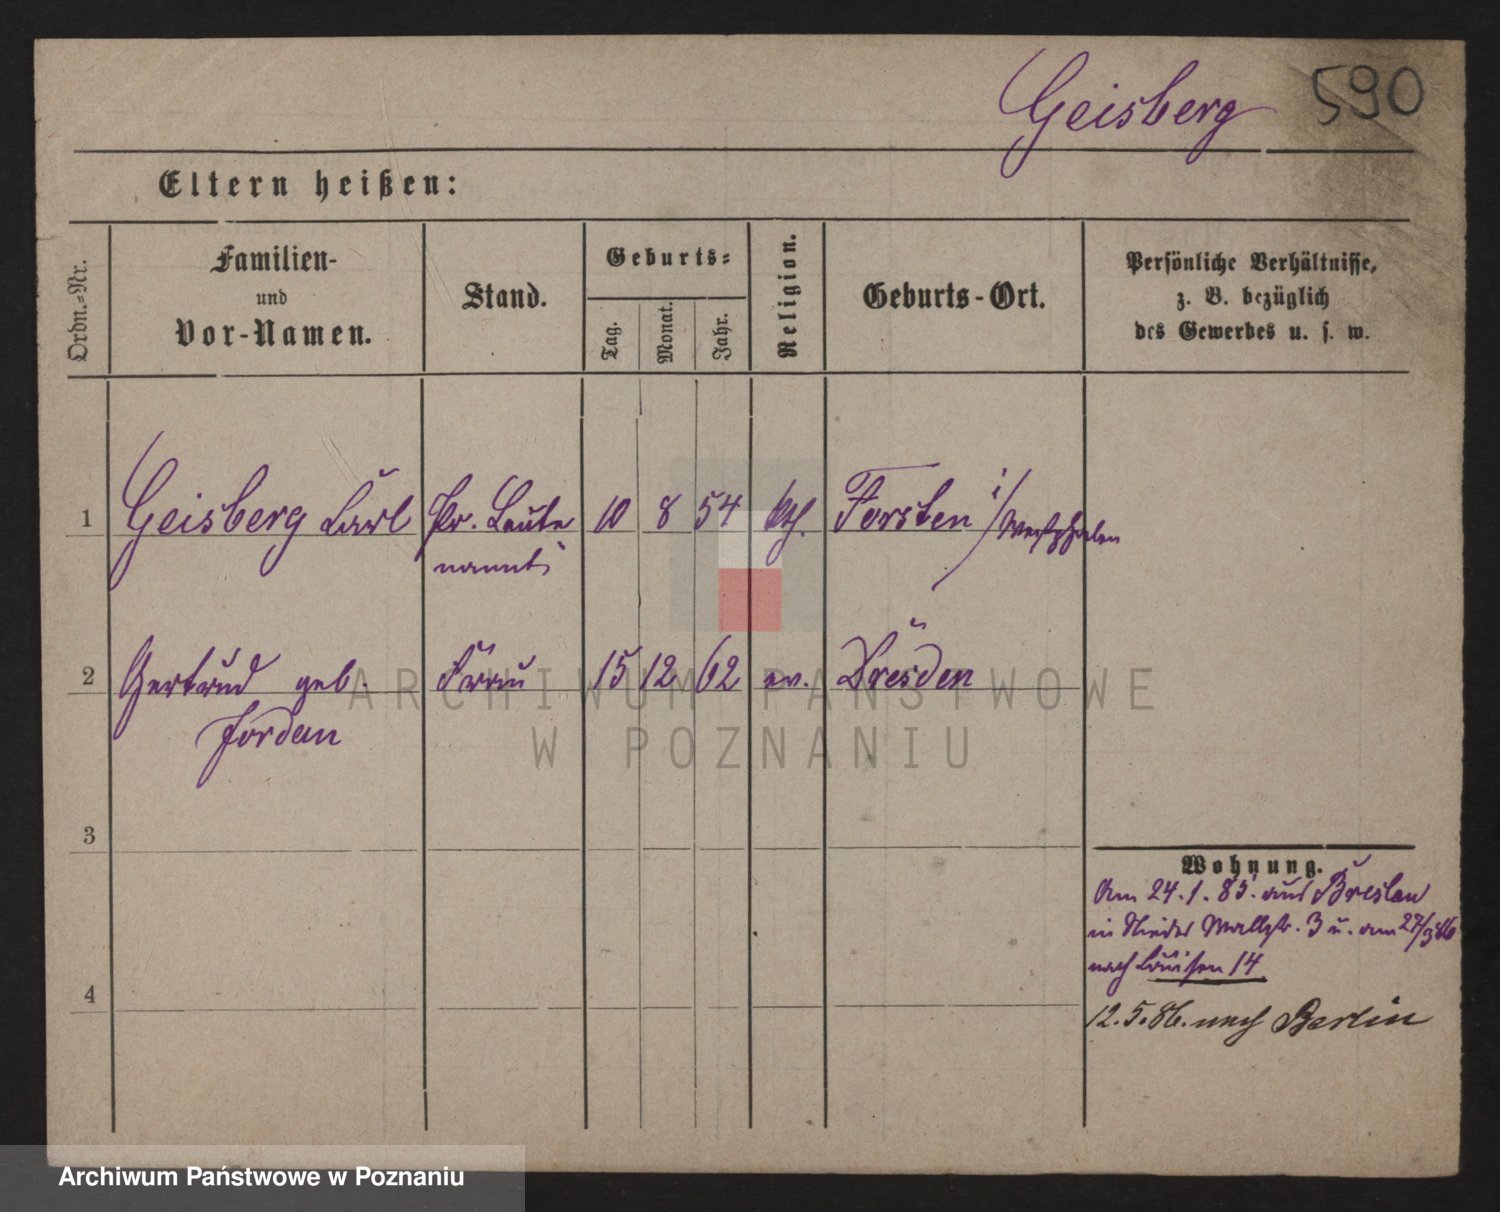 Geisberg 590
Eltern heißen:
Ordn.=Nr.
Familien-
und
Vor-Namen.
Stand.
Geburts=
Tag.
Monat.
Jahr.
Religion.
Geburts-Ort.
Persönliche Verhältnisse,
z. B. bezüglich
des Gewerbes u. s. w.
1 Geisberg Carl Pr. Leute 10 8 54 kth. Forsten i/Westphalen
nannt
2 Gertrud geb. Frau 15 12 62 ev. Dresden
Jordan
3
4
Wohnung.
Am 24.1.85. aus Breslau
in Nieder Wallstr. 3 u. am 27/3 86
nach Louisen 14
12.5.86. nach Berlin
ARCHIWUM PAŃSTWOWE
W POZNANIU
Archiwum Państwowe w Poznaniu